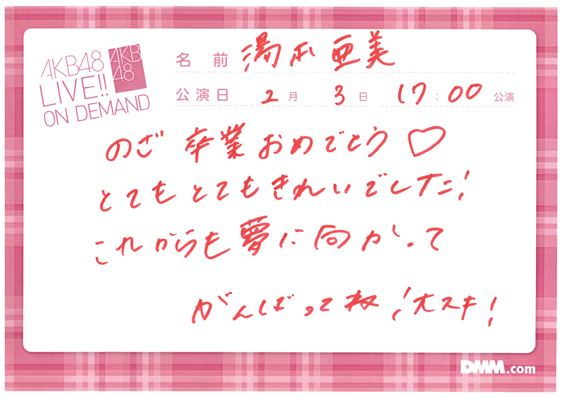 AKB48
LIVE!!
ON DEMAND
AKB
48
名前 湯本亜美
公演日 2月 3日 17:00 公演
のざ 卒業おめでとう♡
とてもとてもきれいでした!
これからも夢に向かって
がんばってね!大スキ!
DMM.com